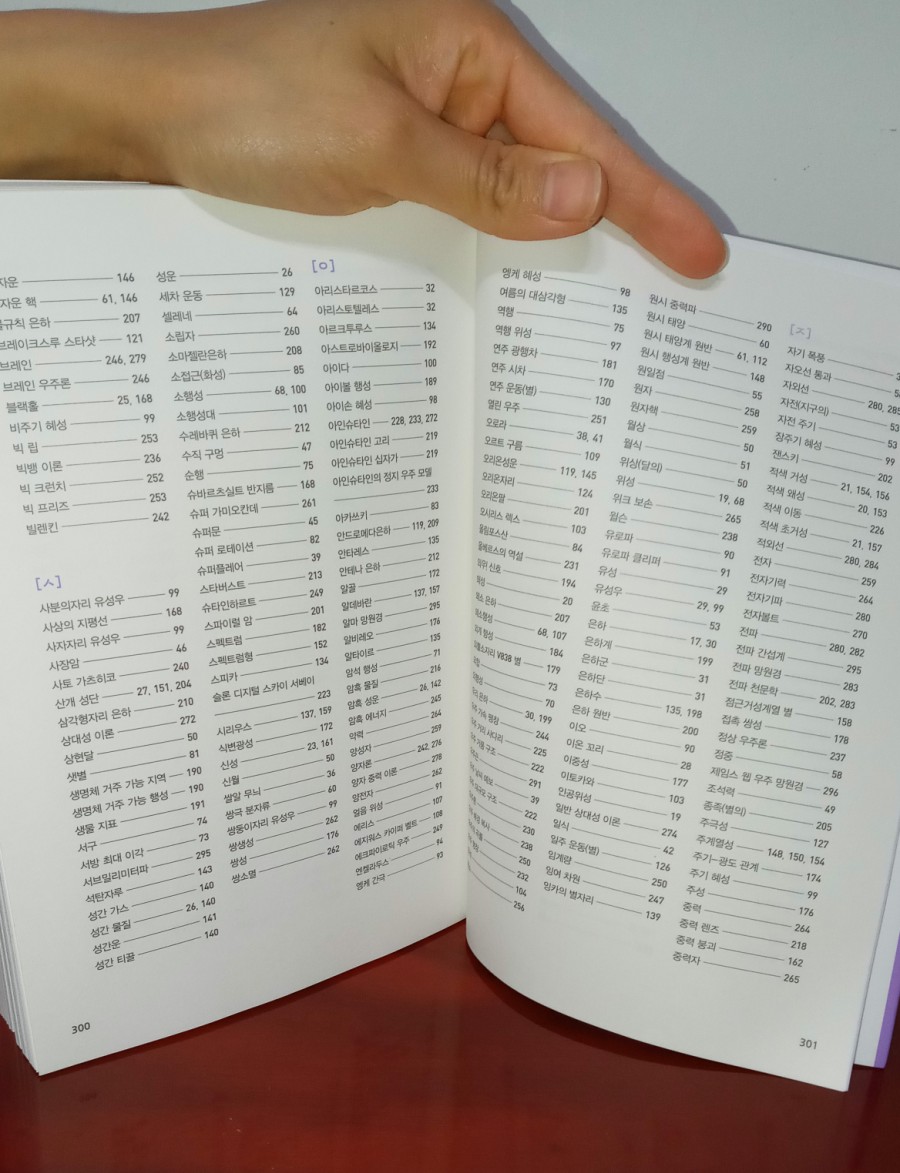 자운 146
자운 핵 61, 146
규칙 은하 207
브레이크스루 스타샷 121
브레인 246, 279
브레인 우주론 246
블랙홀 25, 168
비주기 혜성 99
빅 립 253
빅뱅 이론 236
빅 크런치 252
빅 프리즈 253
빌렌킨 242
[ㅅ]
사분의자리 유성우 99
사상의 지평선 168
사자자리 유성우 99
사장암 46
사토 가츠히코 240
산개 성단 27, 151, 204
삼각형자리 은하 210
상대성 이론 272
상현달 50
샛별 81
생명체 거주 가능 지역 190
생명체 거주 가능 행성 190
생물 지표 191
서구 74
서방 최대 이각 73
서브밀리미터파 295
석탄자루 143
성간 가스 140
성간 물질 26, 140
성간운 141
성간 티끌 140
성운 26
세차 운동 129
셀레네 64
소립자 260
소마젤란은하 208
소접근(화성) 85
소행성 68, 100
소행성대 101
수레바퀴 은하 212
수직 구멍 47
순행 75
슈바르츠실트 반지름 168
슈퍼 가미오칸데 261
슈퍼문 45
슈퍼 로테이션 82
슈퍼플레어 39
스타버스트 213
슈타인하르트 249
스파이럴 암 201
스펙트럼 182
스펙트럼형 152
스피카 134
슬론 디지털 스카이 서베이
223
시리우스 137, 159
식변광성 172
신성 23, 161
신월 50
쌀알 무늬 36
쌍극 분자류 60
쌍둥이자리 유성우 99
쌍생성 262
쌍성 176
쌍소멸 262
[ㅇ]
아리스타르코스 32
아리스토텔레스 32
아르크투루스 134
아스트로바이올로지 192
아이다 100
아이볼 행성 189
아이손 혜성 98
아인슈타인 228, 233, 272
아인슈타인 고리 219
아인슈타인 십자가 219
아인슈타인의 정지 우주 모델
233
아카쓰키 83
안드로메다은하 119, 209
안타레스 135
안테나 은하 212
알골 172
알데바란 137, 157
알마 망원경 295
알비레오 176
알타이르 135
암석 행성 71
암흑 물질 216
암흑 성운 26, 142
암흑 에너지 245
약력 264
양성자 259
양자론 242, 276
양자 중력 이론 278
양전자 262
얼음 위성 91
에리스 107
에지워스 카이퍼 벨트 108
에크파이로틱 우주 249
엔켈라두스 94
엥케 간극 93
300
엥케 혜성 98
여름의 대삼각형 135
역행 75
역행 위성 97
연주 광행차 181
연주 시차 170
연주 운동(별) 130
열린 우주 251
오로라 38, 41
오르트 구름 109
오리온성운 119, 145
오리온자리 124
오리온팔 201
오시리스 렉스 103
올림포스산 84
올베르스의 역설 231
와우 신호 194
20
207
68, 107
184
V838 별 179
73
70
30, 199
244
225
222
291
39
222
230
238
250
232
104
256
원시 중력파 290
원시 태양 60
원시 태양계 원반 61, 112
원시 행성계 원반 148
원일점 55
원자 258
원자핵 259
월상 50
월식 51
위상(달의) 50
위성 19, 68
위크 보손 265
윌슨 238
유로파 90
유로파 클리퍼 91
유성 29
유성우 29, 99
윤초 53
은하 17, 30
은하계 199
은하군 31
은하단 31
은하수 135, 198
은하 원반 200
이오 90
이온 꼬리 28
이중성 177
이토카와 103
인공위성 19
일반 상대성 이론 274
일식 42
일주 운동(별) 126
임계량 250
잉여 차원 247
잉카의 별자리 139
[ㅈ]
자기 폭풍
자오선 통과
자외선 280, 285
자전(지구의) 53
자전 주기 53
장주기 혜성 99
잰스키 202
적색 거성 21, 154, 156
적색 왜성 20, 153
적색 이동 226
적색 초거성 21, 157
적외선 280, 284
전자 259
전자기력 264
전자기파 280
전자볼트 270
전파 280, 282
전파 간섭계 295
전파 망원경 283
전파 천문학 202, 283
점근거성계열 별 158
접촉 쌍성 178
정상 우주론 237
정중 58
제임스 웹 우주 망원경 296
조석력 49
종족(별의) 205
주극성 127
주계열성 148, 150, 154
주기–광도 관계 174
주기 혜성 99
주성 176
중력 264
중력 렌즈 218
중력 붕괴 162
중력자 265
301